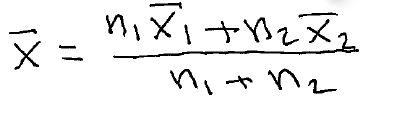 x̄ = (n₁x̄₁ + n₂x̄₂) / (n₁ + n₂)